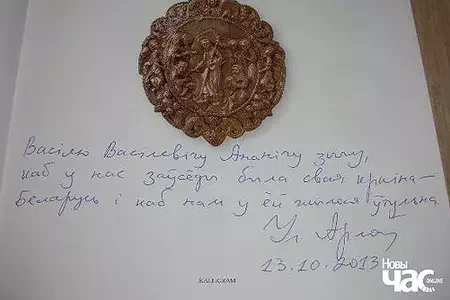 Васілю Васілевічу Ананічу зычу,
каб у нас заўсёды была свая краіна–
Беларусь і каб нам у ёй жылося ўтульна
Ул. Арлоў
13.10.2013
KALLIGRAM
НОВЫ
ЧАС
ONLINE